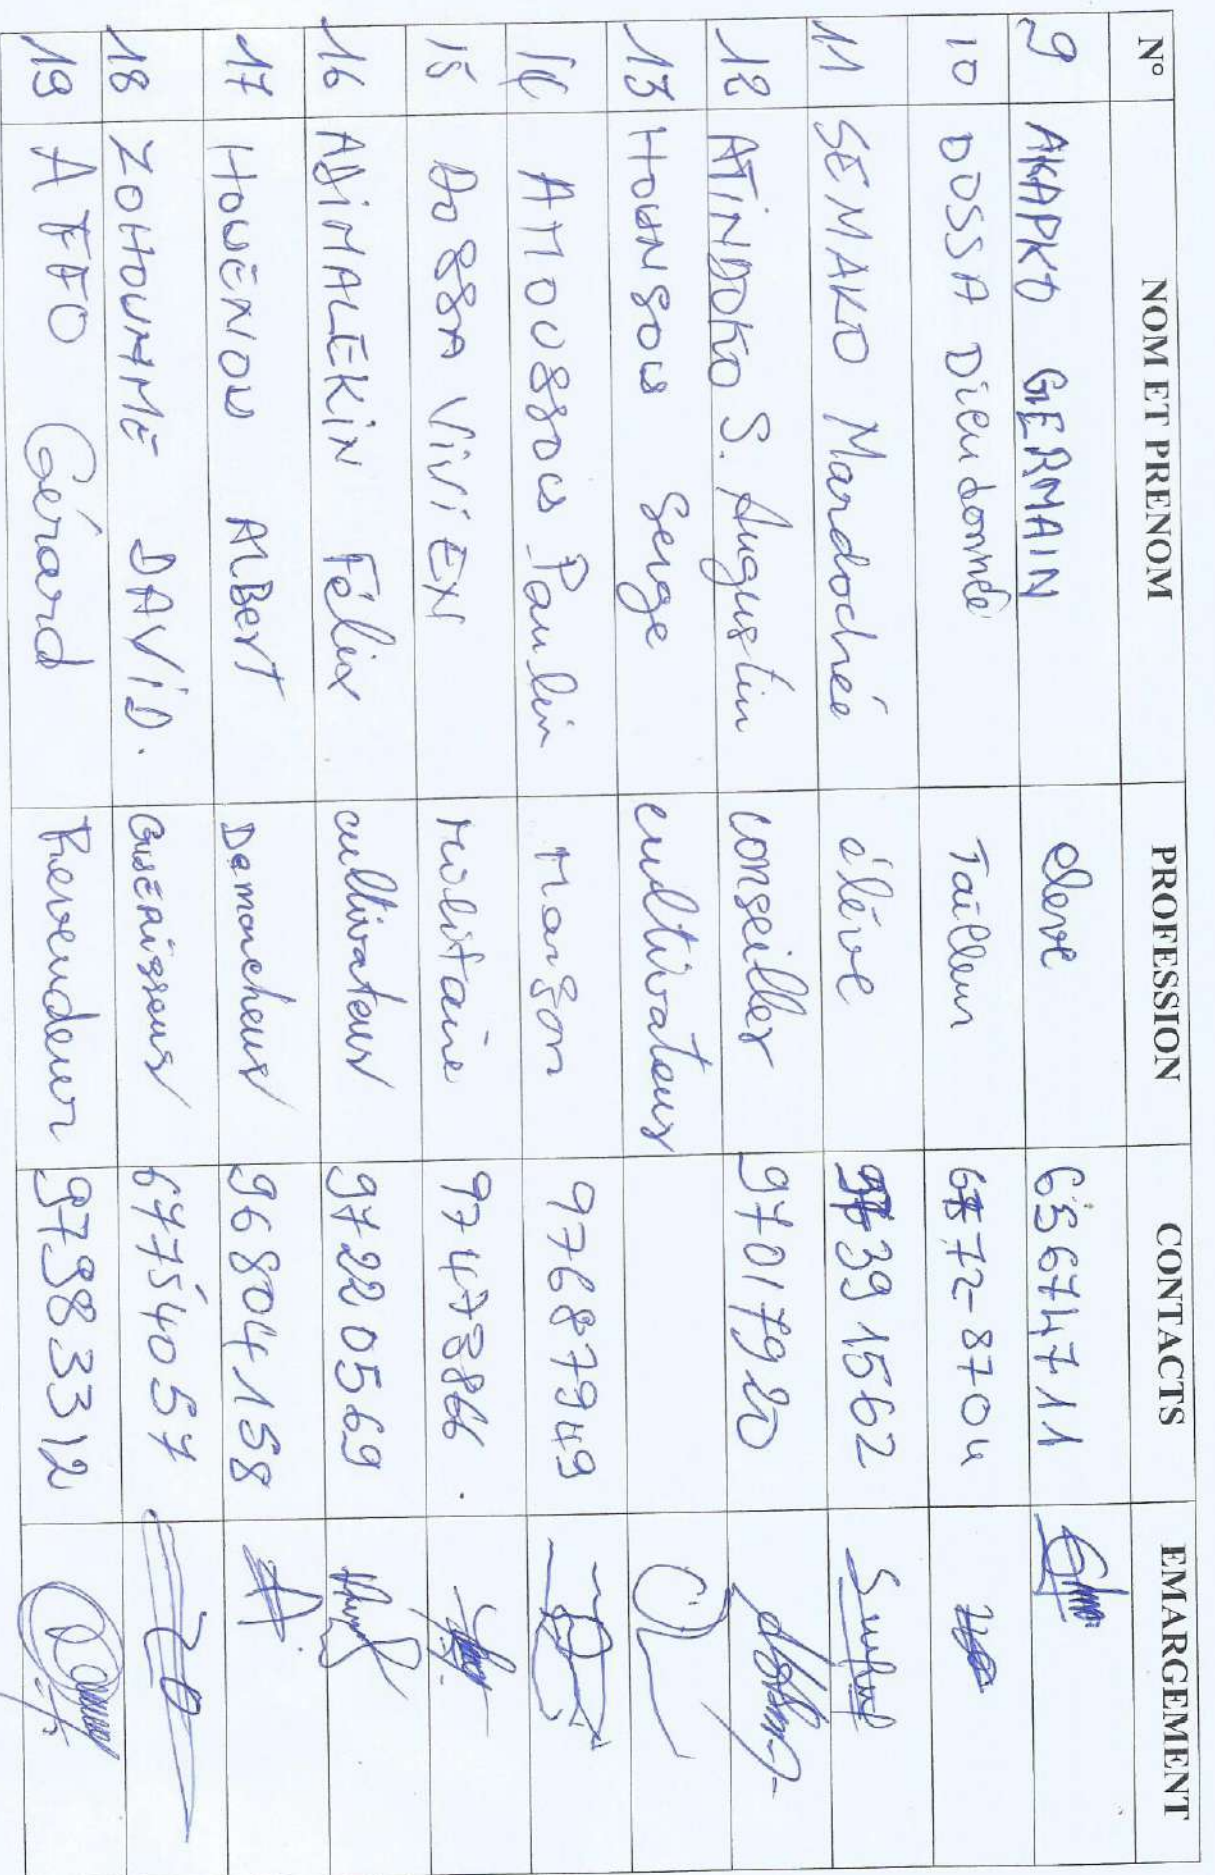 N° NOM ET PRENOM PROFESSION CONTACTS EMARGEMENT
9 AKAPKO GERMAIN eleve 65674711
10 DOSSA Dieudonné Tailleur 72-8704
11 SEMAKO Mardochée élève 391562
12 ATINDOKO S. Augustin conseiller 97017920
13 HOUNSOU Serge cultivateur
14 AMOUSSOU Paulin Maçon 97687949
15 DOSSA ViViEN Militaire 97473866.
16 ADJIMALEKIN Félix cultivateur 97220569
17 HOUENOU ALBERT Demarcheur 96804158
18 ZOHOUNME DAVID. GUERISSEUR 67754057
19 AFFO Gérard Revendeur 97983312